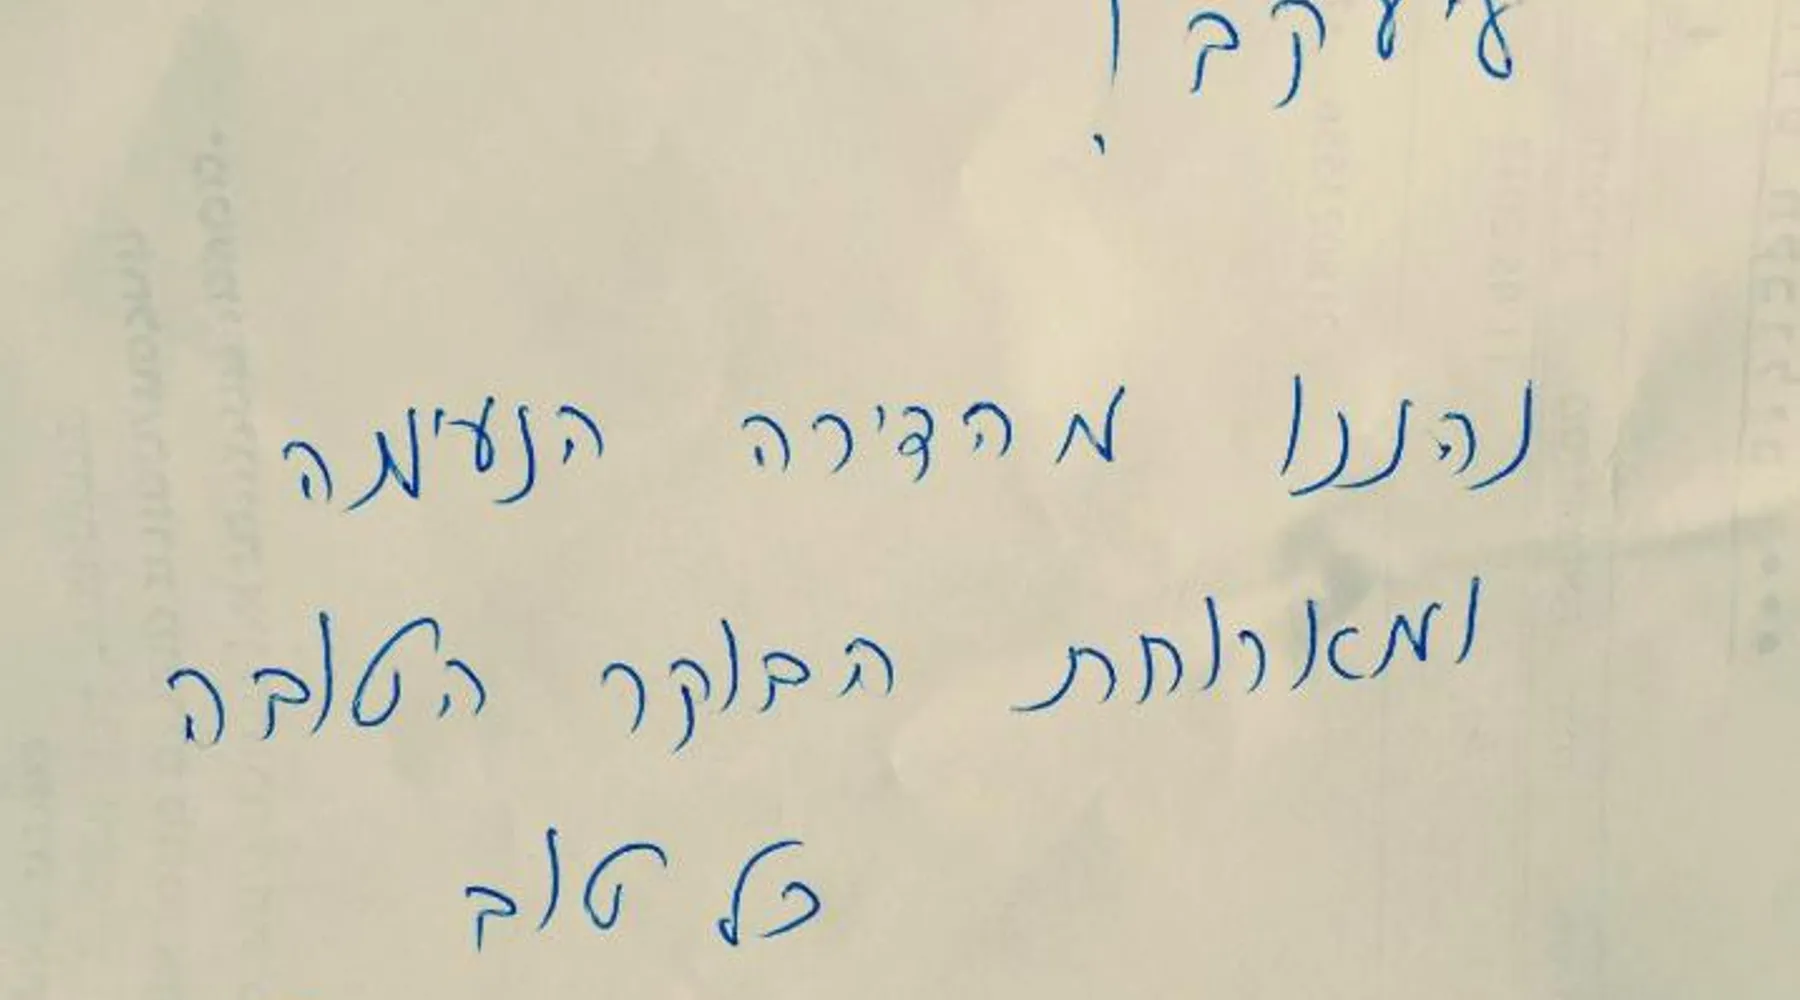 ליעקב !
נהננו מהדירה הנעימה
ומארוחת הבוקר הטובה
כל טוב